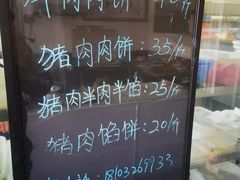 牛肉肉饼:40/斤
猪肉肉饼:35/斤
猪肉半肉半馅:25/斤
猪肉馅饼:20/斤